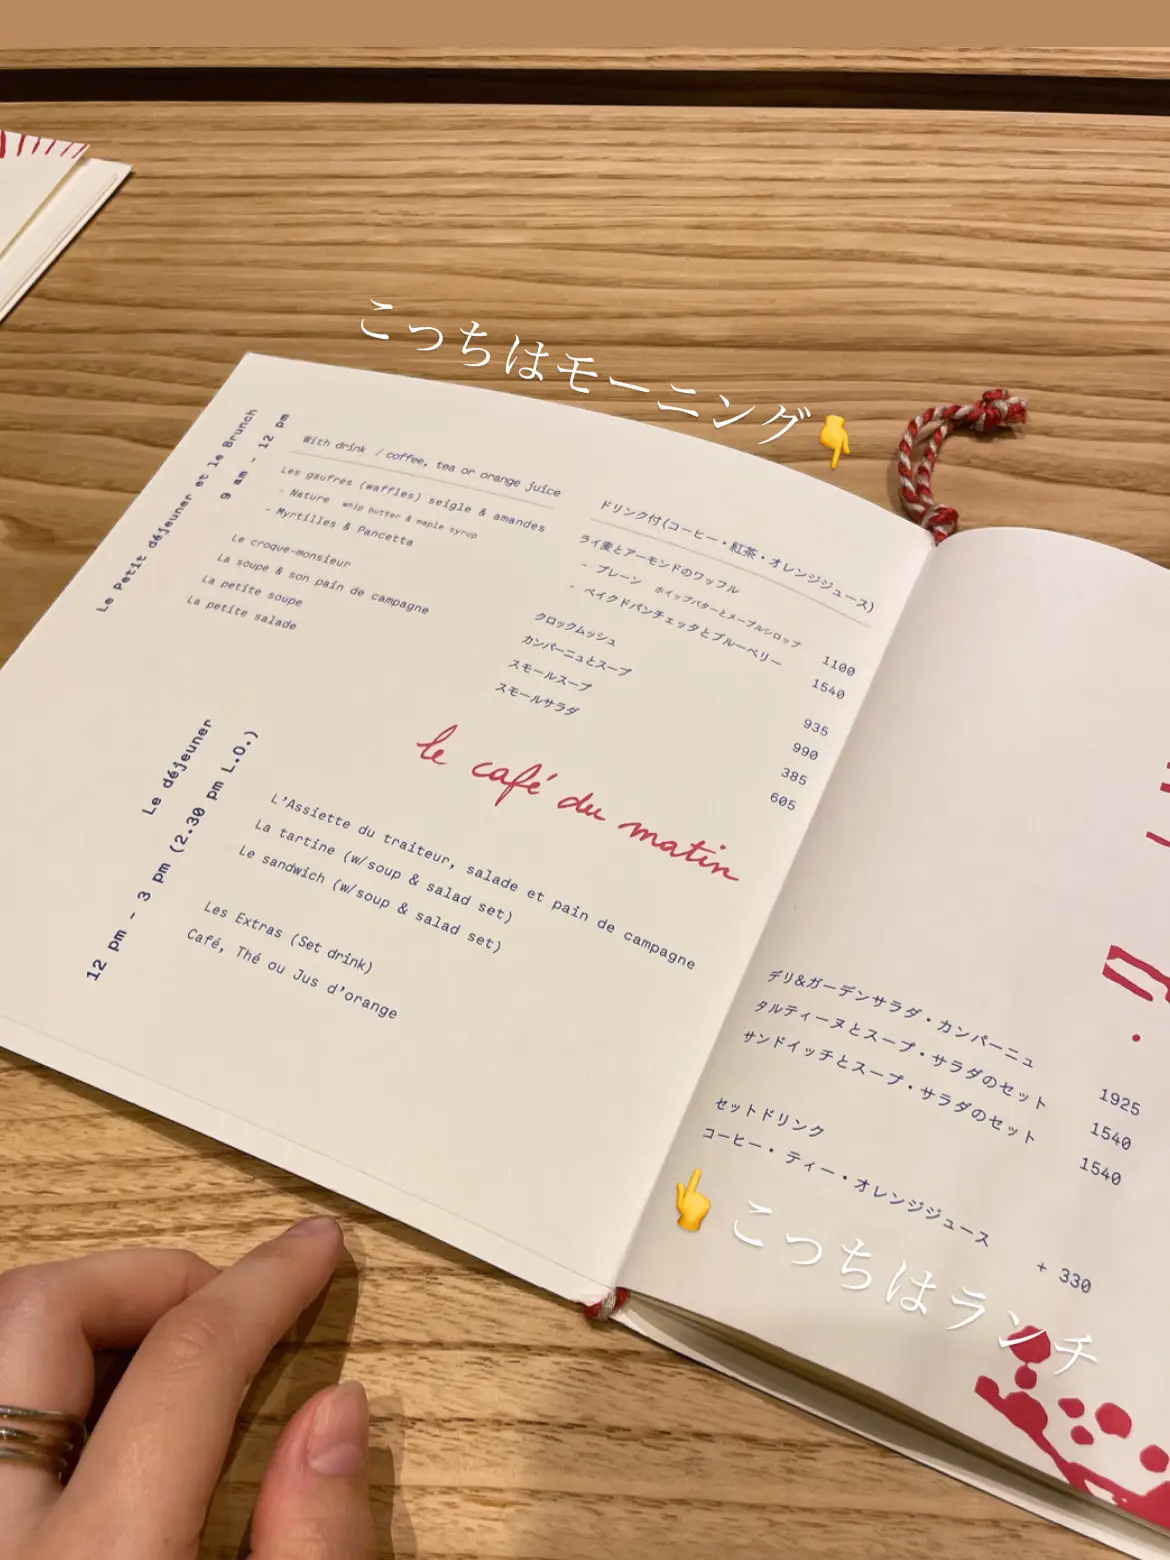 こっちはモーニング👇
Le Petit déjeuner et le Brunch
9 am - 12 pm
With drink / coffee, tea or orange juice
Les gaufres (waffles) seigle & amandes
- Nature whip butter & maple syrup
- Myrtilles & Pancetta
Le croque-monsieur
La soupe & son pain de campagne
La petite soupe
La petite salade
ドリンク付(コーヒー・紅茶・オレンジジュース)
ライ麦とアーモンドのワッフル
- プレーン ホイップバターとメープルシロップ 1100
- ベイクドパンチェッタとブルーベリー 1540
クロックムッシュ 935
カンパーニュとスープ 990
スモールスープ 385
スモールサラダ 605
le café du matin
Le déjeuner
12 pm - 3 pm (2.30 pm L.O.)
L'Assiette du traiteur, salade et pain de campagne
La tartine (w/soup & salad set)
Le sandwich (w/soup & salad set)
Les Extras (Set drink)
Café, Thé ou Jus d'orange
デリ&ガーデンサラダ・カンパーニュ 1925
タルティーヌとスープ・サラダのセット 1540
サンドイッチとスープ・サラダのセット 1540
セットドリンク
コーヒー・ティー・オレンジジュース + 330
👆こっちはランチ